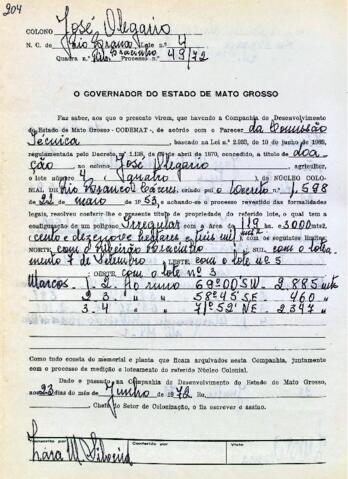 204
COLONO José Olegario
N. C. de Rio Branco Lote n.º 4
Quadra n.º Processo n.º 49/72
O GOVERNADOR DO ESTADO DE MATO GROSSO
Faz saber, aos que o presente virem, que havendo a Companhia de Desenvolvimento
do Estado de Mato Grosso - CODEMAT -, de acôrdo com o Parecer da Comissão
Técnica, bascado na Lei n.º 2.933, de 10 de junho de 1969,
regulamentada pelo Decreto n.º 1.138, de de abril de 1970, concedido, a título de doa
ção ao colono José Olegario agricultor,
o lote número 4 (quatro) do NÚCLEO COLO-
NIAL DE Rio Branco Cáceres, criado pelo Decreto n.º 1.598
de 22 de maio de 1953, e achando-se o processo revestido das formalidades
legais, resolveu conferir-lhe o presente título de propriedade do referido lote, o qual tem a
configuração de um polígono Irregular com a área de 119 hs. 3000 mts2.
(cento e dezenove hectares e três mil m2) com os seguintes limites:
NORTE com o Ribeirão SUL com o lotea-
mento 7 de Setembro LESTE com o lote nº 5
OESTE com o lote nº 3
Marcos - 1. 2. Ao rumo 69º00'SW - 2.885 mts
2. 3. " " 58º45'SE - 460 "
3. 4 " " 71º52'NE - 2.347 "
Como tudo consta do memorial e planta que ficam arquivados nesta Companhia, juntamente
com o processo de medição e loteamento do referido Núcleo Colonial.
Dado e passado na Companhia de Desenvolvimento do Estado de Mato Grosso,
aos 23 dias do mês de Junho de 1972
Chefe do Setor de Colonização, o fiz escrever e assino.
Transcrito por Conferido por Visto
Silveira